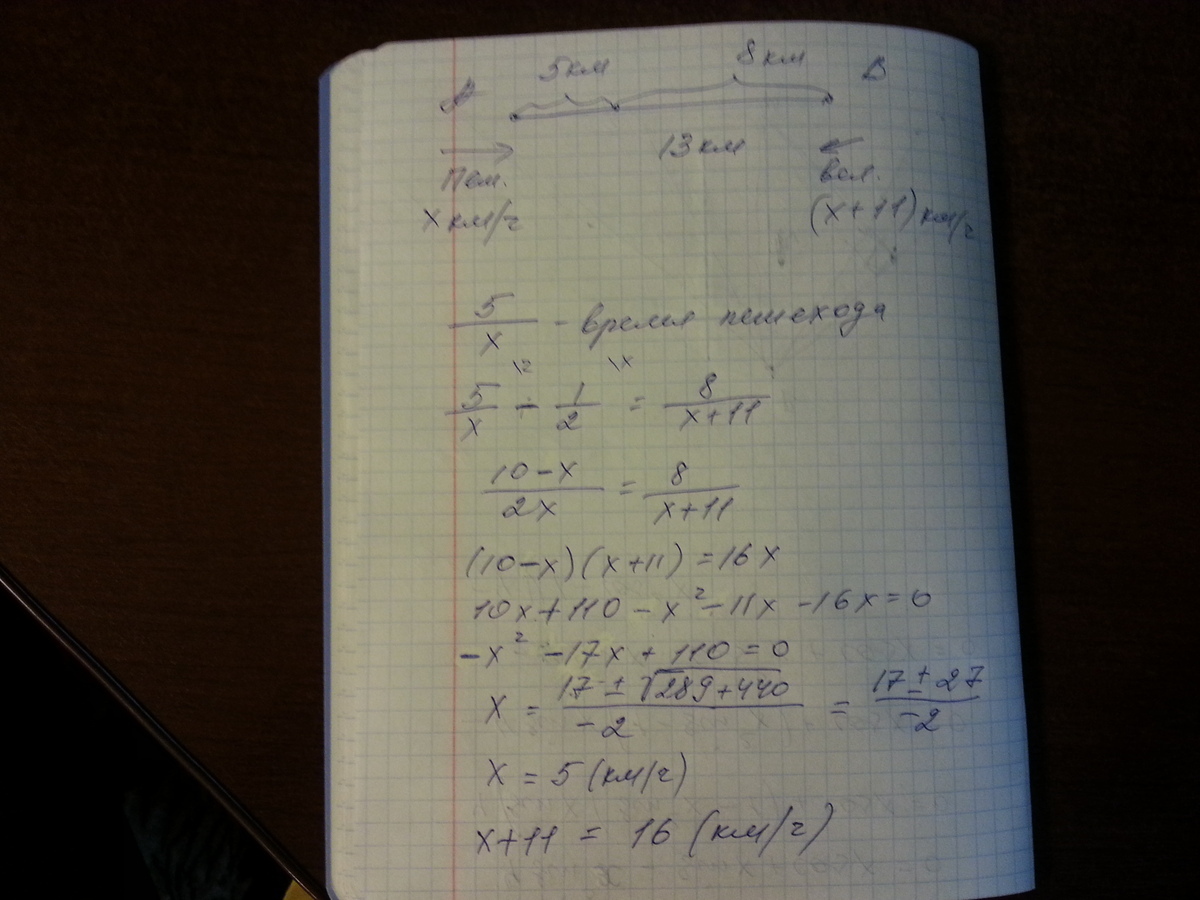 5км 8км
A B
13 км
Пеш. вел.
x км/ч (x+11) км/ч
5/x - время пешехода
\2 \x
5/x - 1/2 = 8/(x+11)
(10-x)/2x = 8/(x+11)
(10-x)(x+11) = 16x
10x + 110 - x² - 11x - 16x = 0
-x² - 17x + 110 = 0
x = (17 ± √289+440)/-2 = (17 ± 27)/-2
x = 5 (км/ч)
x+11 = 16 (км/ч)